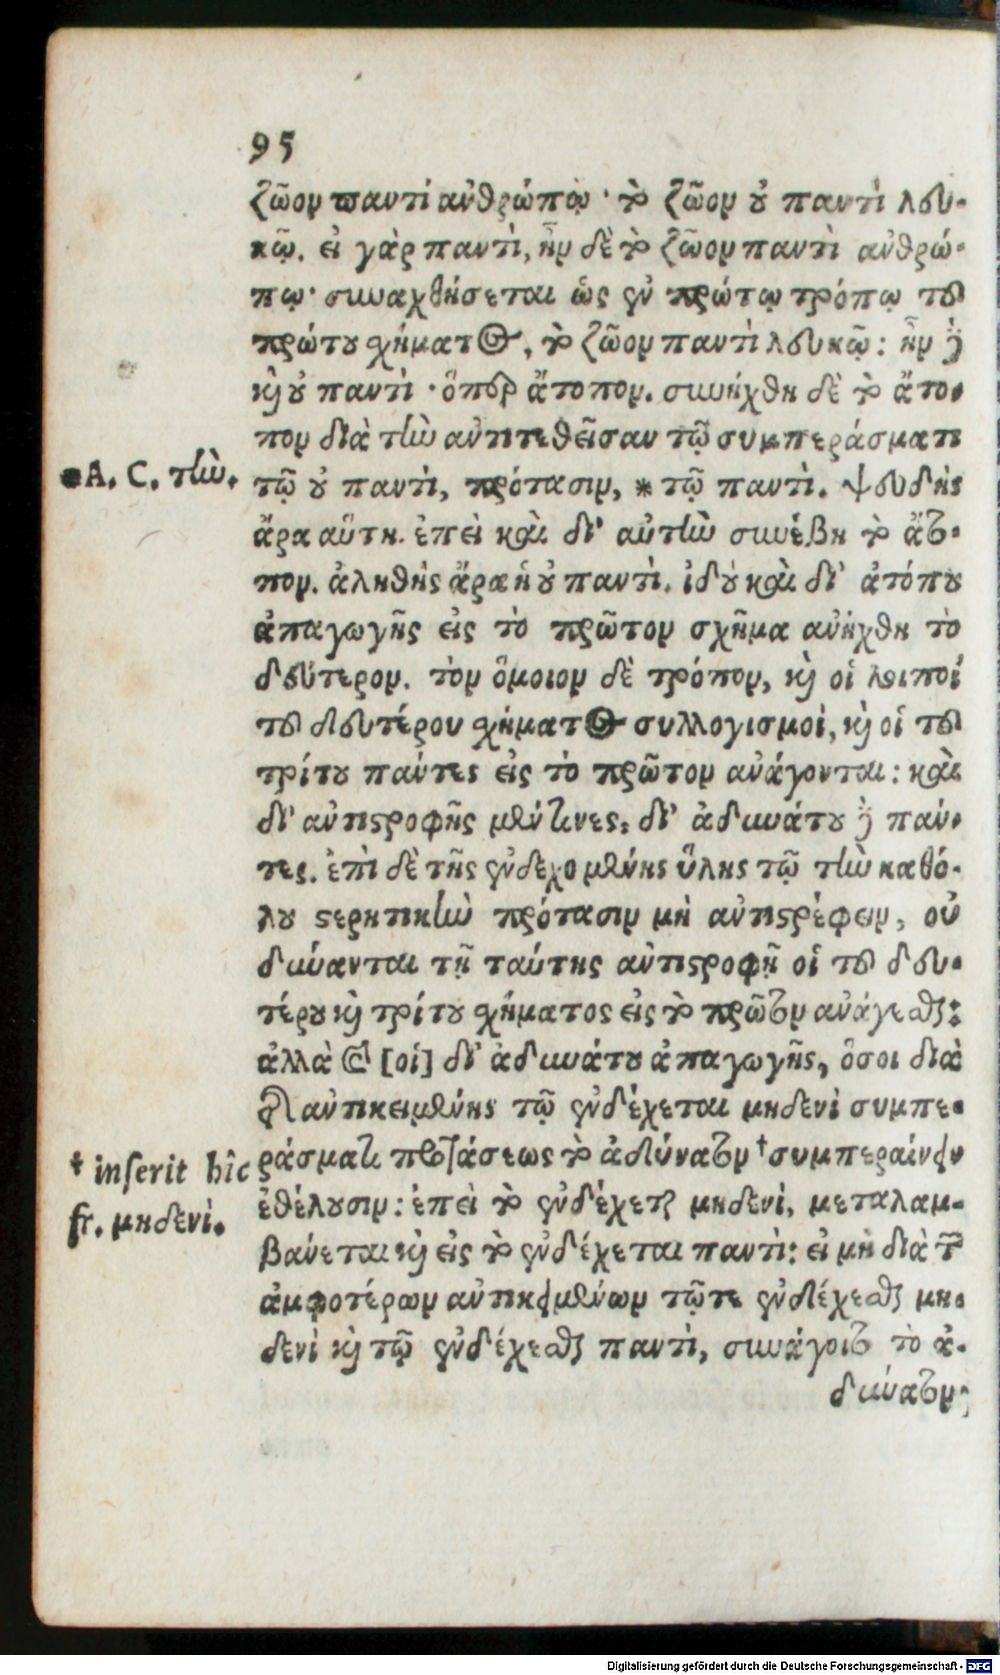 95
ζῶον παντὶ ἀνθρώπῳ· τὸ ζῶον οὐ παντὶ λευ-
κῷ. εἰ γὰρ παντὶ, ἦν δὲ τὸ ζῶον παντὶ ἀνθρώ-
πῳ· συναχθήσεται ὡς ἐν πρώτῳ τρόπῳ τοῦ
πρώτου σχήματος, τὸ ζῶον παντὶ λευκῷ: ἦν δὲ
καὶ οὐ παντὶ· ὅπερ ἄτοπον. συνήχθη δὲ τὸ ἄτο-
πον διὰ τὴν ἀντιτεθεῖσαν τῷ συμπεράσματι
*A. C. τὴν.
τῷ οὐ παντὶ, πρότασιν, * τῷ παντὶ. ψευδὴς
ἄρα αὕτη. ἐπεὶ καὶ δι' αὐτὴν συνέβη τὸ ἄτο-
πον. ἀληθὴς ἄρα ἡ οὐ παντὶ. ἰδοὺ καὶ δι' ἀτόπου
ἀπαγωγῆς εἰς τὸ πρῶτον σχῆμα ἀνήχθη τὸ
δεύτερον. τὸν ὅμοιον δὲ τρόπον, καὶ οἱ λοιποὶ
τοῦ δευτέρου σχήματος συλλογισμοὶ, καὶ οἱ τοῦ
τρίτου πάντες εἰς τὸ πρῶτον ἀνάγονται: καὶ
δι' ἀντιστροφῆς μέν τινες, δι' ἀδυνάτου δὲ πάν-
τες. ἐπὶ δὲ τῆς ἐνδεχομένης ὕλης τῷ τὴν καθό-
λου στερητικὴν πρότασιν μὴ ἀντιστρέφειν, οὐ
δύνανται τῇ ταύτης ἀντιστροφῇ οἱ τοῦ δευ-
τέρου καὶ τρίτου σχήματος εἰς τὸ πρῶτον ἀνάγεσθαι:
ἀλλὰ [οἱ] δι' ἀδυνάτου ἀπαγωγῆς, ὅσοι διὰ
τῆς ἀντικειμένης τῷ ἐνδέχεται μηδενὶ συμπε-
† inserit hîc
fr. μηδενὶ.
ράσματι προτάσεως τὸ ἀδύνατον † συμπεραίνειν
ἐθέλουσιν: ἐπεὶ τὸ ἐνδέχεται μηδενὶ, μεταλαμ-
βάνεται καὶ εἰς τὸ ἐνδέχεται παντὶ: εἰ μὴ διὰ τῶν
ἀμφοτέρων ἀντικειμένων τῷ τε ἐνδέχεσθαι μη-
δενὶ καὶ τῷ ἐνδέχεσθαι παντὶ, συνάγοιτο τὸ ἀ-
δύνατον,
Digitalisierung gefördert durch die Deutsche Forschungsgemeinschaft - DFG